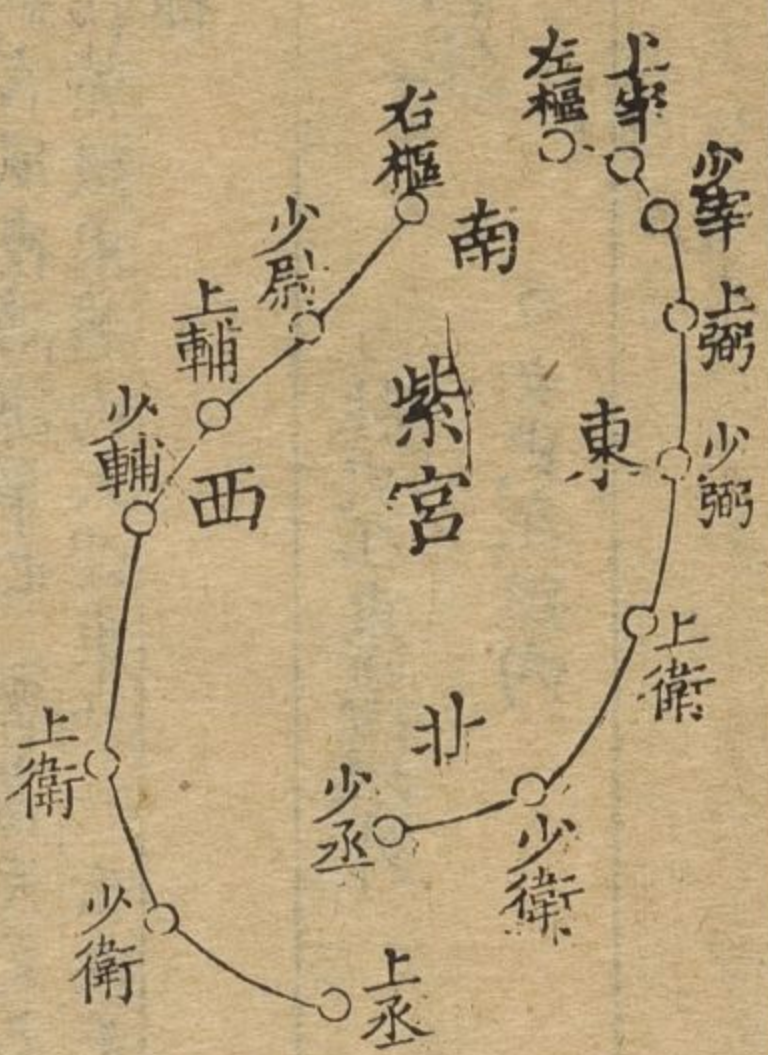 左樞
上宰
少宰
上弼
少弼
上衛
少衛
少丞
右樞
少尉
上輔
少輔
上衛
少衛
上丞
南
東
紫宮
西
北